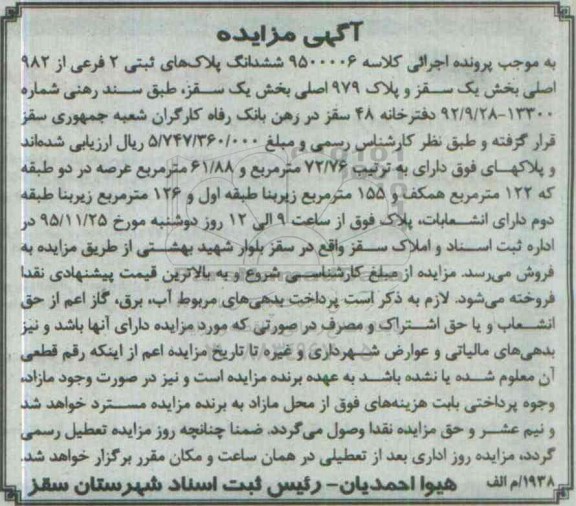 آگهی مزایده
به موجب پرونده اجرائی کلاسه ۹۵۰۰۰۰۶ ششدانگ پلاک‌های ثبتی ۲ فرعی از ۹۸۲
اصلی بخش یک سـقز و پلاک ۹۷۹ اصلی بخش یک سـقز، طبق سند رهنی شماره
۱۳۳۰۰-۹۲/۹/۲۸ دفترخانه ۴۸ سقز در رهن بانک رفاه کارگران شعبه جمهوری سقز
قرار گرفته و طبق نظر کارشناس رسمی و مبلغ ۵/۷۴۷/۳۶۰/۰۰۰ ریال ارزیابی شده‌اند
و پلاکهـای فوق دارای به ترتیب ۷۲/۷۶ مترمربع و ۶۱/۸۸ مترمربع عرصه در دو طبقه
که ۱۲۲ مترمربع همکف، ۱۵۵ مترمربع زیربنا طبقه اول و ۱۲۶ مترمربع زیربنا طبقه
دوم دارای انشـعابات، پلاک فوق از ساعت ۹ الی ۱۲ روز دوشنبه مورخ ۹۵/۱۱/۲۵ در
اداره ثبت اسـناد و املاک سـقز واقع در سقز بلوار شهید بهشـتی از طریق مزایده به
فروش می‌رسد. مزایده از مبلغ کارشناسـی شروع و به بالاترین قیمت پیشنهادی نقدا
فروخته می‌شود. لازم به ذکر است پرداخت بدهی‌های مربوط آب، برق، گاز اعم از حق
انشـعاب و یا حق اشـتراک و مصرف در صورتی که مورد مزایده دارای آنها باشد و نیز
بدهی‌های مالیاتی و عوارض شـهرداری و غیره تا تاریخ مزایده اعم از اینکه رقم قطعی
آن معلوم شـده یا نشده باشـد به عهده برنده مزایده است و نیز در صورت وجود مازاد،
وجوه پرداختی بابت هزینه‌های فوق از محل مازاد به برنده مزایده مسـترد خواهد شد
و نیم عشـر و حق مزایده نقدا وصول می‌گردد. ضمنا چنانچه روز مزایده تعطیل رسمی
گردد، مزایده روز اداری بعد از تعطیلی در همان ساعت و مکان مقرر برگزار خواهد شد.
۱۹۳۸/م الف هیوا احمدیان- رئیس ثبت اسناد شهرستان سقز